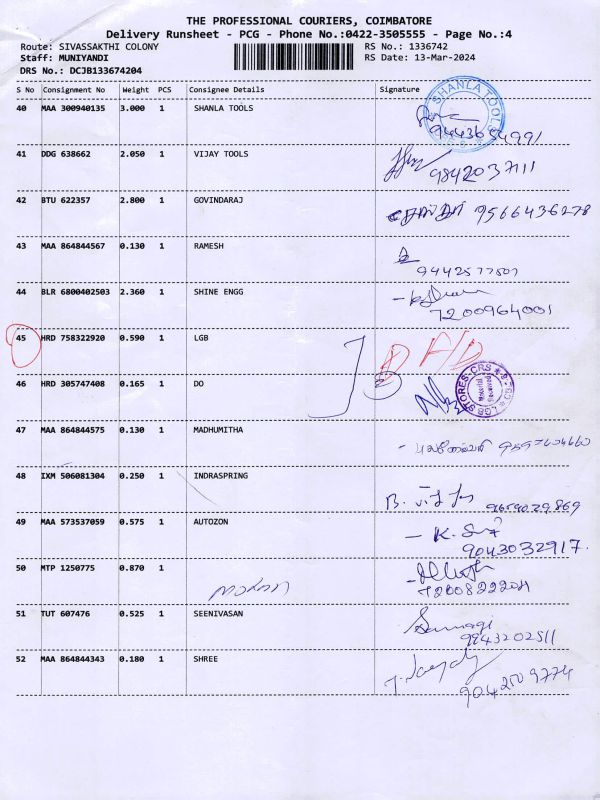 THE PROFESSIONAL COURIERS, COIMBATORE
Delivery Runsheet - PCG - Phone No.:0422-3505555 - Page No.:4
Route: SIVASSAKTHI COLONY RS No.: 1336742
Staff: MUNIYANDI RS Date: 13-Mar-2024
DRS No.: DCJB133674204
S No Consignment No Weight PCS Consignee Details Signature
40 MAA 300940135 3.000 1 SHANLA TOOLS
SHANLA TOOLS
41 DDG 638662 2.050 1 VIJAY TOOLS
9842037111
42 BTU 622357 2.800 1 GOVINDARAJ 9566436278
43 MAA 864844567 0.130 1 RAMESH
9442577507
44 BLR 6800402503 2.360 1 SHINE ENGG
7200964001
45 HRD 758322920 0.590 1 LGB
46 HRD 305747408 0.165 1 DO
STORES-CRS LGB
Material Received
47 MAA 864844575 0.130 1 MADHUMITHA
48 IXM 506081304 0.250 1 INDRASPRING
49 MAA 573537059 0.575 1 AUTOZON
9043032917
50 MTP 1250775 0.870 1
51 TUT 607476 0.525 1 SEENIVASAN
9943202511
52 MAA 864844343 0.180 1 SHREE
9042509774